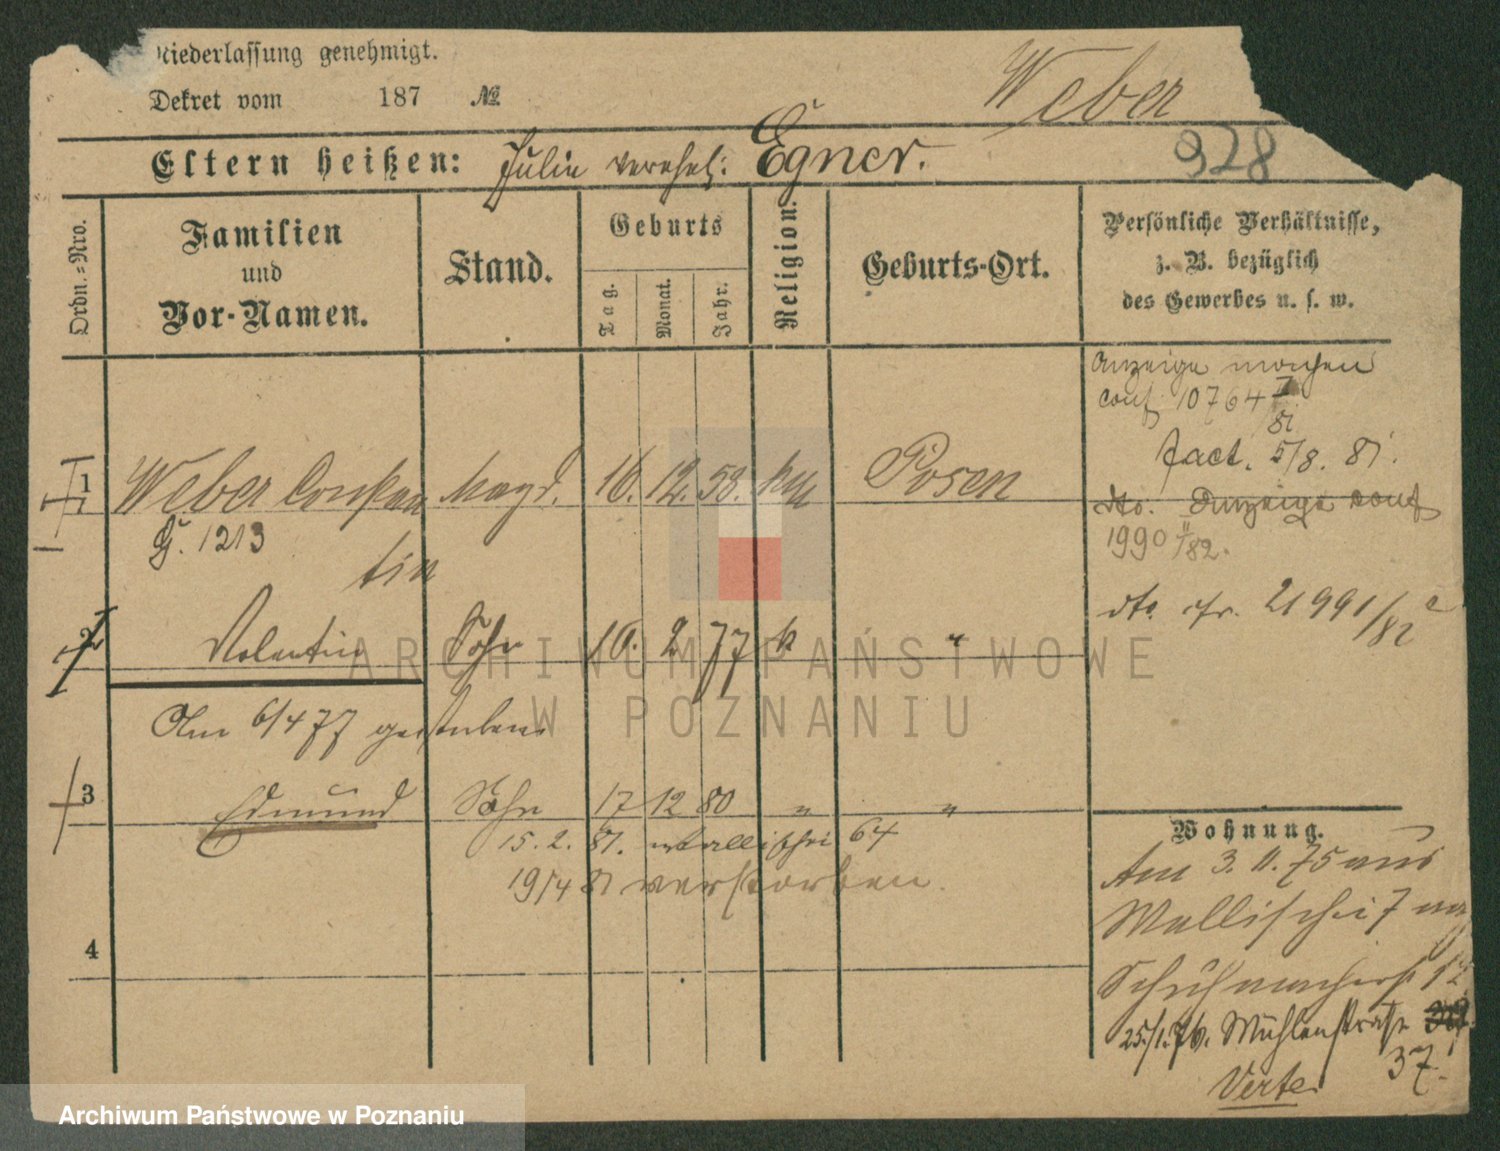 Niederlassung genehmigt.
Dekret vom 187 №
Weber
928
Eltern heißen: Julie verehel: Egner.
Ordn.=Nro.
Familien
und
Vor-Namen.
Stand.
Geburts
Tag.
Monat.
Jahr.
Religion.
Geburts-Ort.
Persönliche Verhältnisse,
z. B. bezüglich
des Gewerbes u. s. w.
1 Weber Constan Magd. 16. 12. 58. Posen
G. 1213
tin
2 Valentin Sohn 10. 2 77 k "
Am 6/4 77 gestorben
3 Edmund Sohn 17 12 80 " "
15. 2. 81. Wallischei 64
19/4 81 verstorben.
4
Anzeige machen
conf 10764 I
81
fact. 5/8. 81.
dto. Anzeige conf
1990 II/82.
dto. 21991/82
Wohnung.
Am 3. 11. 75 aus
Wallischei 7
Schuhmacherst 12
25./1. 76. Mühlenstraße
37.
Verte
ARCHIWUM PAŃSTWOWE
W POZNANIU
Archiwum Państwowe w Poznaniu